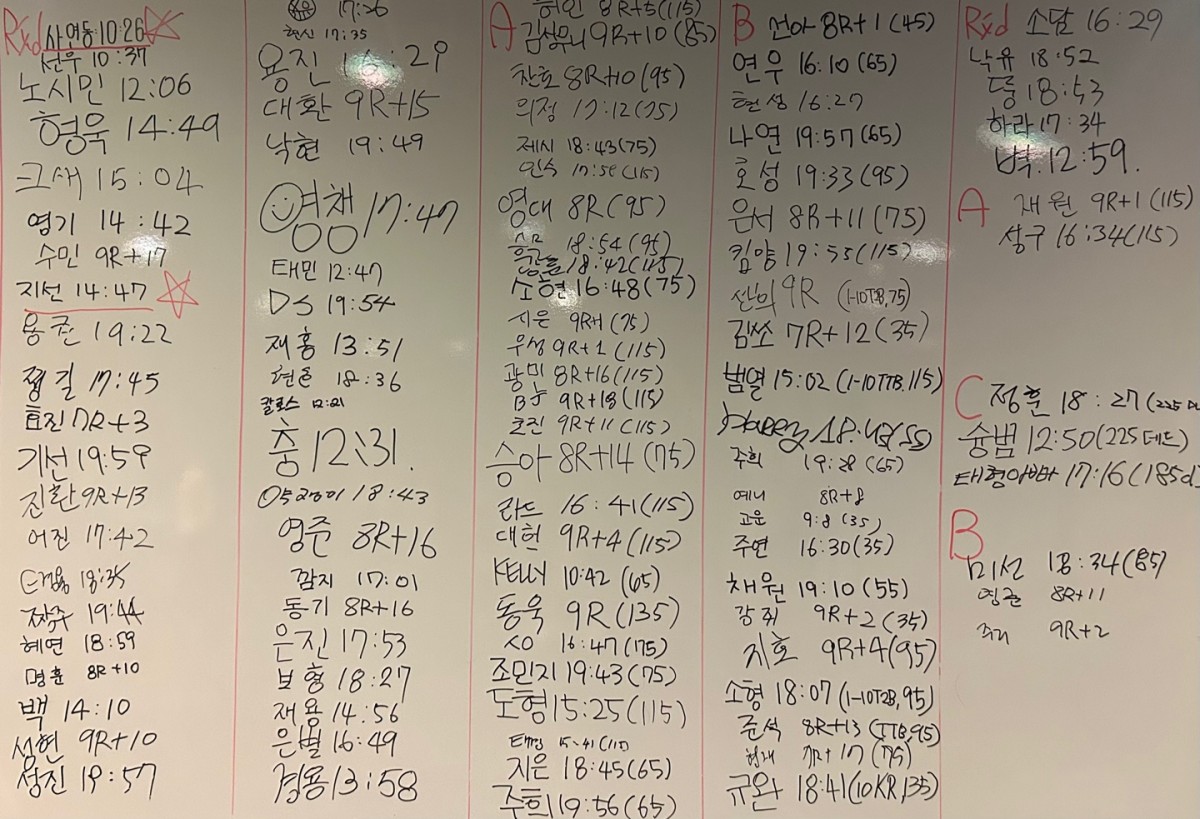 Rxd 사연동 10:26
선우 10:39
노시민 12:06
형욱 14:49
크새 15:04
영기 14:42
수민 9R+17
지선 14:47
용준 19:22
쩡길 17:45
효진 7R+3
기선 19:59
진환 9R+13
어진 17:42
18:35
짱주 19:44
혜연 18:59
명훈 8R+10
백 14:10
성현 9R+10
성진 19:57
17:26
현신 17:35
용진 16:29
대환 9R+15
낙현 19:49
영챙 17:47
태민 12:47
DS 19:54
재홍 13:51
현준 18:36
칼로스 12:21
충 12:31.
18:43
영준 8R+16
깜지 17:01
동기 8R+16
은진 17:53
보형 18:27
재용 14:56
은별 16:49
경용 13:58
A
허인 8R+5(115)
김상무니 9R+10 (85)
찬호 8R+10 (95)
의정 17:12(75)
제시 18:43(75)
민수 17:58(115)
영대 8R(95)
18:54(95)
18:42(115)
소현 16:48(75)
시은 9R+1 (75)
우성 9R+1 (115)
광민 8R+16(115)
9R+18(115)
효진 9R+11(115)
승아 8R+14(75)
라드 16:41(115)
대헌 9R+4(115)
KELLY 10:42 (65)
동욱 9R(135)
SO 16:47(75)
조민지 19:43(75)
도형 15:25(115)
15:41(115)
지은 18:45(65)
주희 19:56(65)
B 선아 8R+1 (45)
연우 16:10(65)
현성 16:27
나연 19:57(65)
호성 19:33(95)
은서 8R+11(75)
킴양 19:53(115)
산의 9R (1-10T2B,75)
김쏘 7R+12(35)
범열 15:02(1-10TTB,115)
happy 18:48(55)
주희 19:28(65)
예니 8R+8
고운 9:8(35)
주연 16:30(35)
채원 19:10(55)
강쥐 9R+2(35)
지호 9R+4(95)
소형 18:07(1-10T2B,95)
준석 8R+13(TTB,95)
7R+17(75)
규완 18:41(10KR,135)
Rxd 소담 16:29
낙유 18:52
둥 18:53
하라 17:34
벽.12:59.
A
재원 9R+1(115)
성구 16:34(115)
C
정훈 18:27(225
슝범 12:50(225데드)
태형아빠 17:16(185
B
미선 18:34(85)
영준 8R+11
주리 9R+2